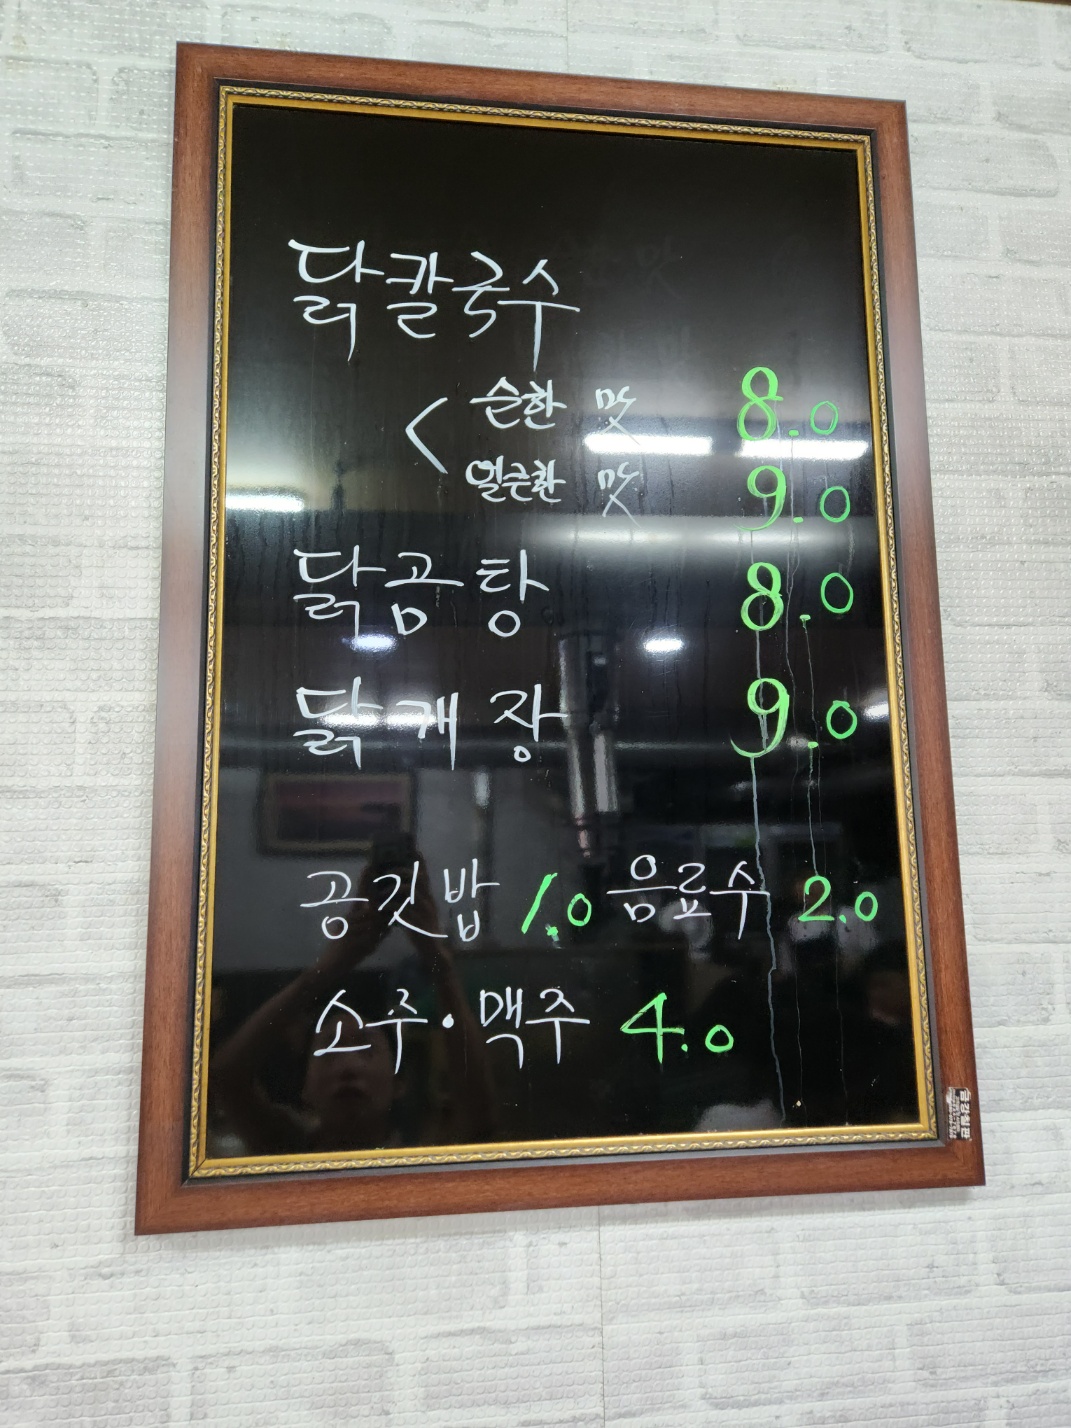 닭칼국수
< 순한 맛 8.0
얼큰한 맛 9.0
닭곰탕 8.0
닭개장 9.0
공깃밥 1.0 음료수 2.0
소주·맥주 4.0